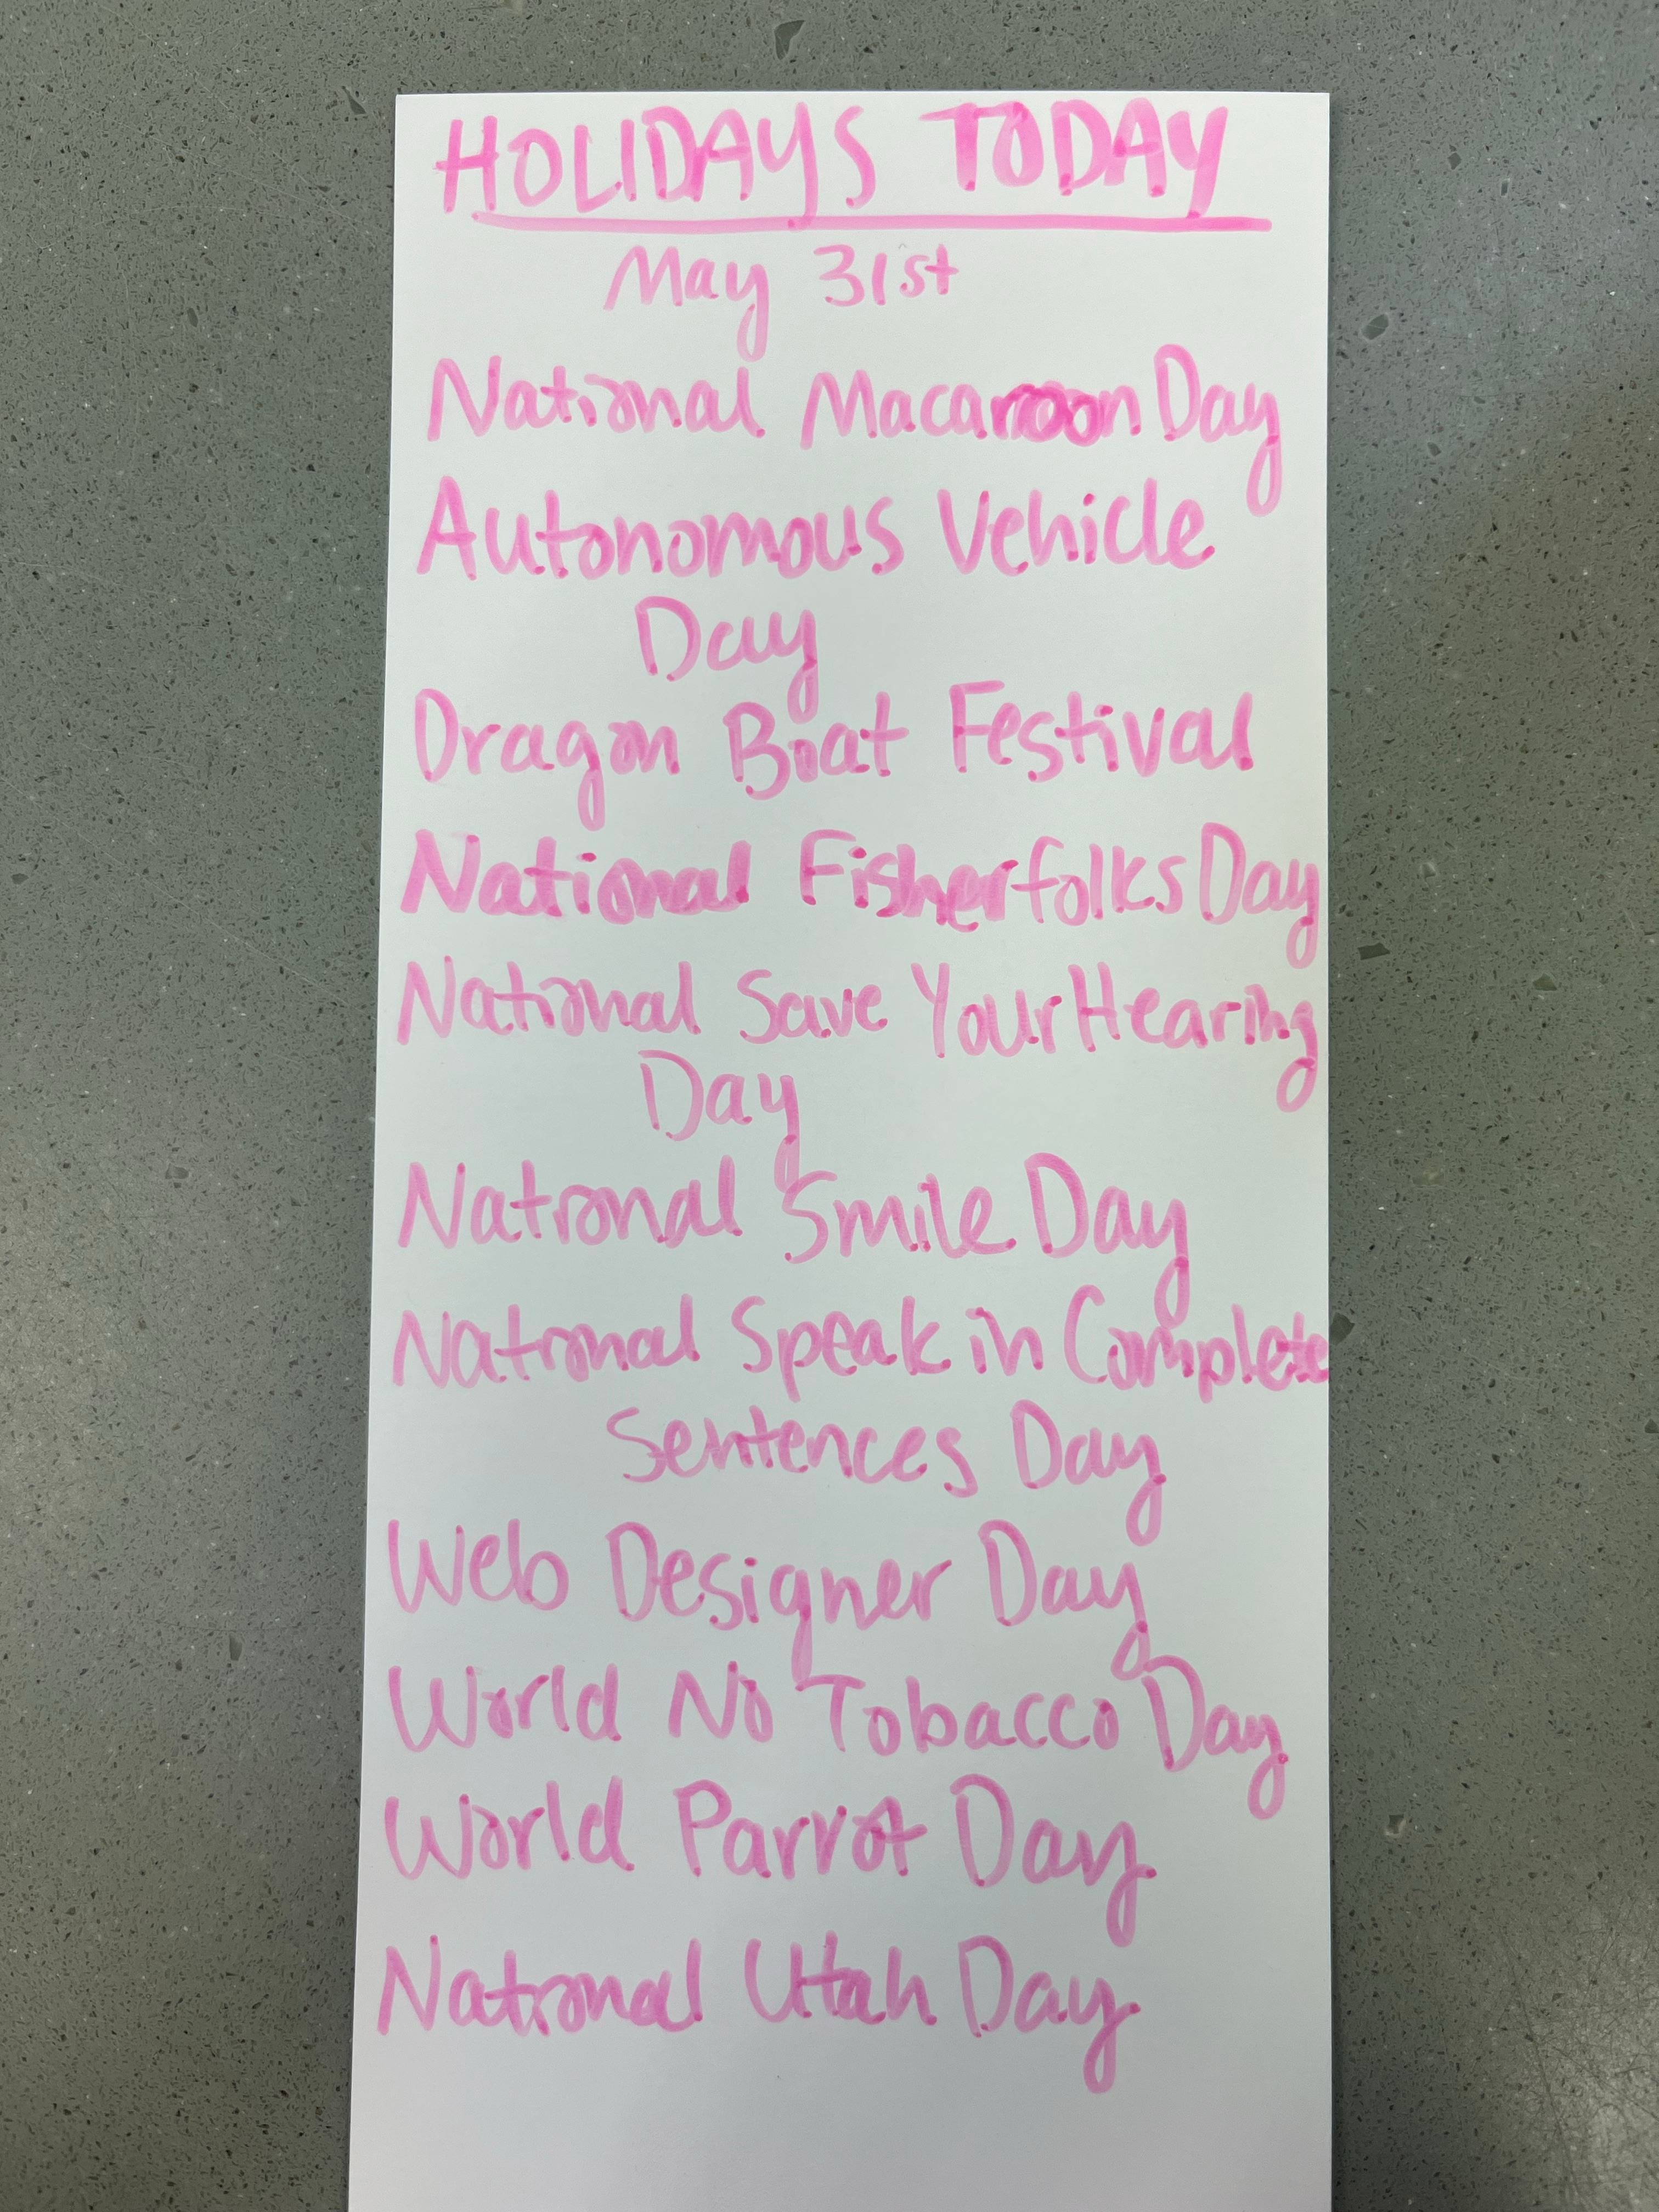 HOLIDAYS TODAY
May 31st
National Macaroon Day
Autonomous Vehicle
Day
Dragon Boat Festival
National Fisherfolks Day
National Save Your Hearing
Day
National Smile Day
National Speak in Complete
Sentences Day
Web Designer Day
World No Tobacco Day
World Parrot Day
National Utah Day